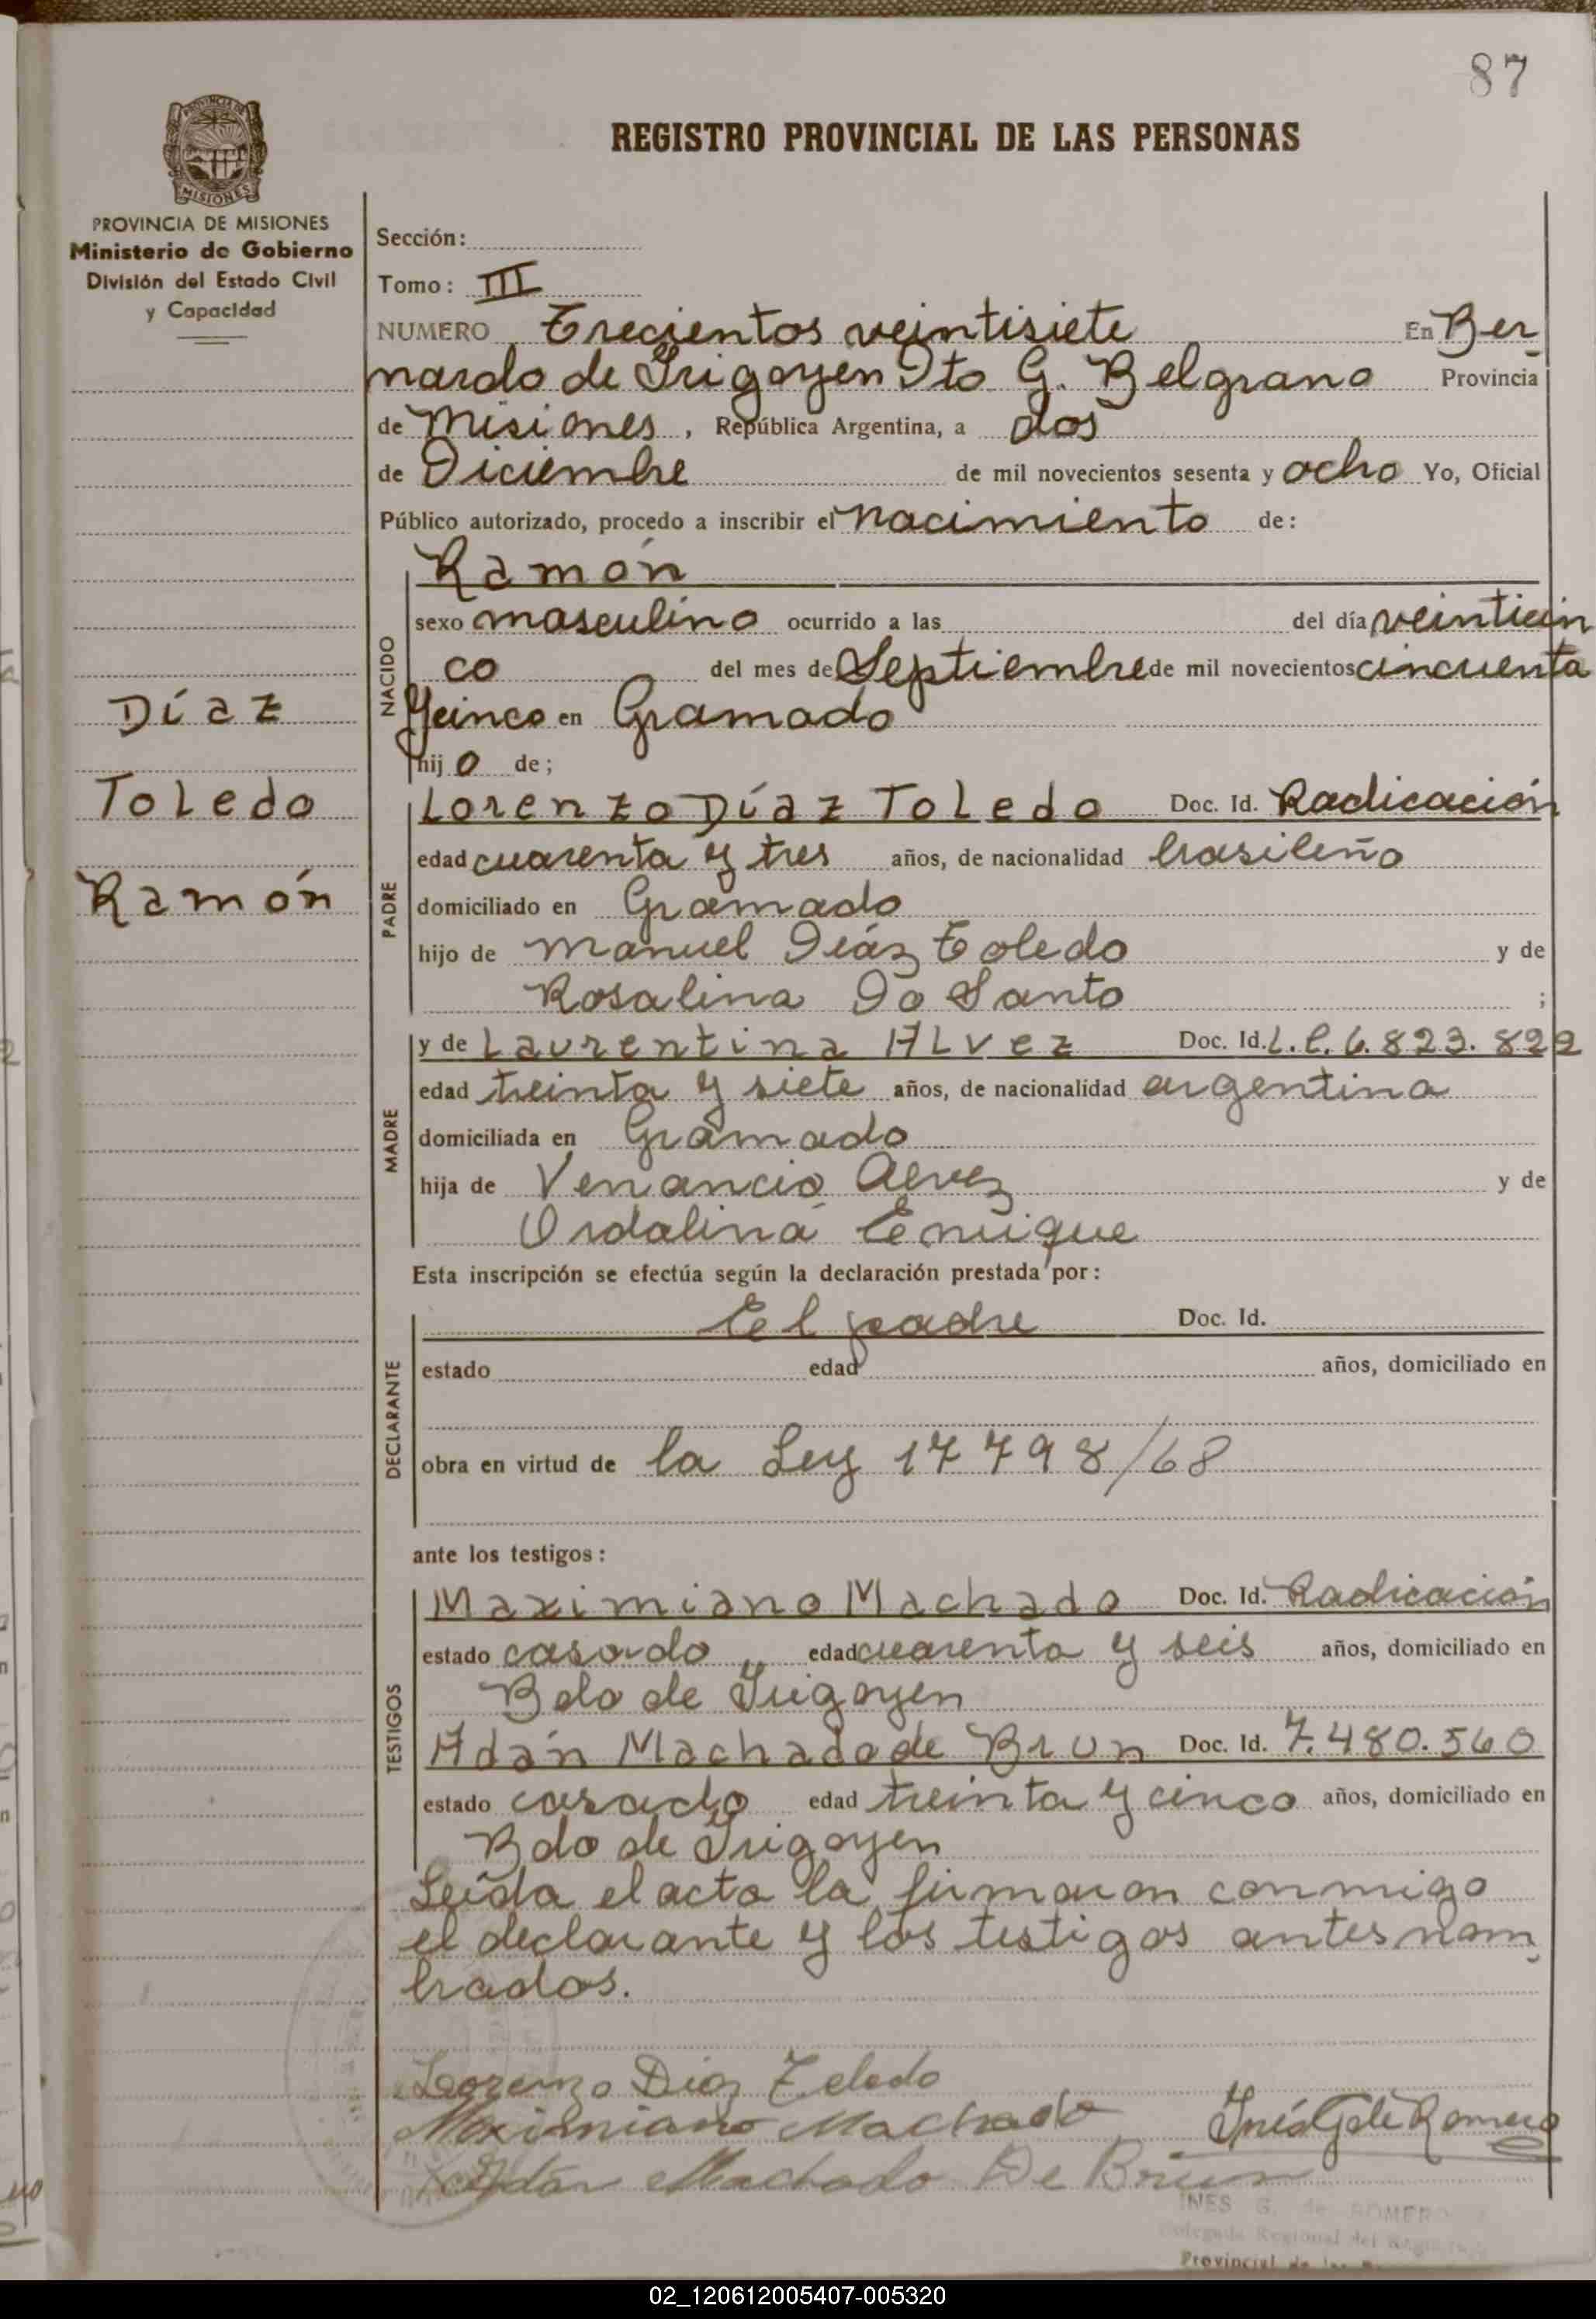 87
PROVINCIA DE
MISIONES
REGISTRO PROVINCIAL DE LAS PERSONAS
PROVINCIA DE MISIONES
Ministerio de Gobierno
División del Estado Civil
y Capacidad
Sección:
Tomo: III
NUMERO Trecientos veintisiete En Ber
nardo de Irigoyen Dto G. Belgrano Provincia
de Misiones, República Argentina, a dos
de Diciembre de mil novecientos sesenta y ocho Yo, Oficial
Público autorizado, procedo a inscribir el nacimiento de:
NACIDO
Ramón
sexo masculino ocurrido a las del día veinticin
co del mes de Septiembre de mil novecientos cincuenta
y cinco en Gramado
hijo de;
Díaz
Toledo
Ramón
PADRE
Lorenzo Díaz Toledo Doc. Id. Radicación
edad cuarenta y tres años, de nacionalidad brasileño
domiciliado en Gramado
hijo de Manuel Diáz Toledo y de
Rosalina Do Santo ;
MADRE
y de Laurentina Alvez Doc. Id. L.C. 6.823.822
edad treinta y siete años, de nacionalidad argentina
domiciliada en Gramado
hija de Venancio Alvez y de
Ordalina Enrique
Esta inscripción se efectúa según la declaración prestada por:
DECLARANTE
El padre Doc. Id.
estado edad años, domiciliado en
obra en virtud de la Ley 17798/68
ante los testigos:
TESTIGOS
Maximiano Machado Doc. Id. Radicación
estado casado edad cuarenta y seis años, domiciliado en
Bdo de Irigoyen
Adán Machado de Brun Doc. Id. 7.480.560
estado casado edad treinta y cinco años, domiciliado en
Bdo de Irigoyen
Leída el acta la firmaron conmigo
el declarante y los testigos antes nom
brados.
Lorenzo Diaz Toledo
Maximiano Machado
Inés G de Romero
Adán Machado De Brun
INES G. de ROMERO
Delegada Regional del
Provincial de
02_120612005407-005320